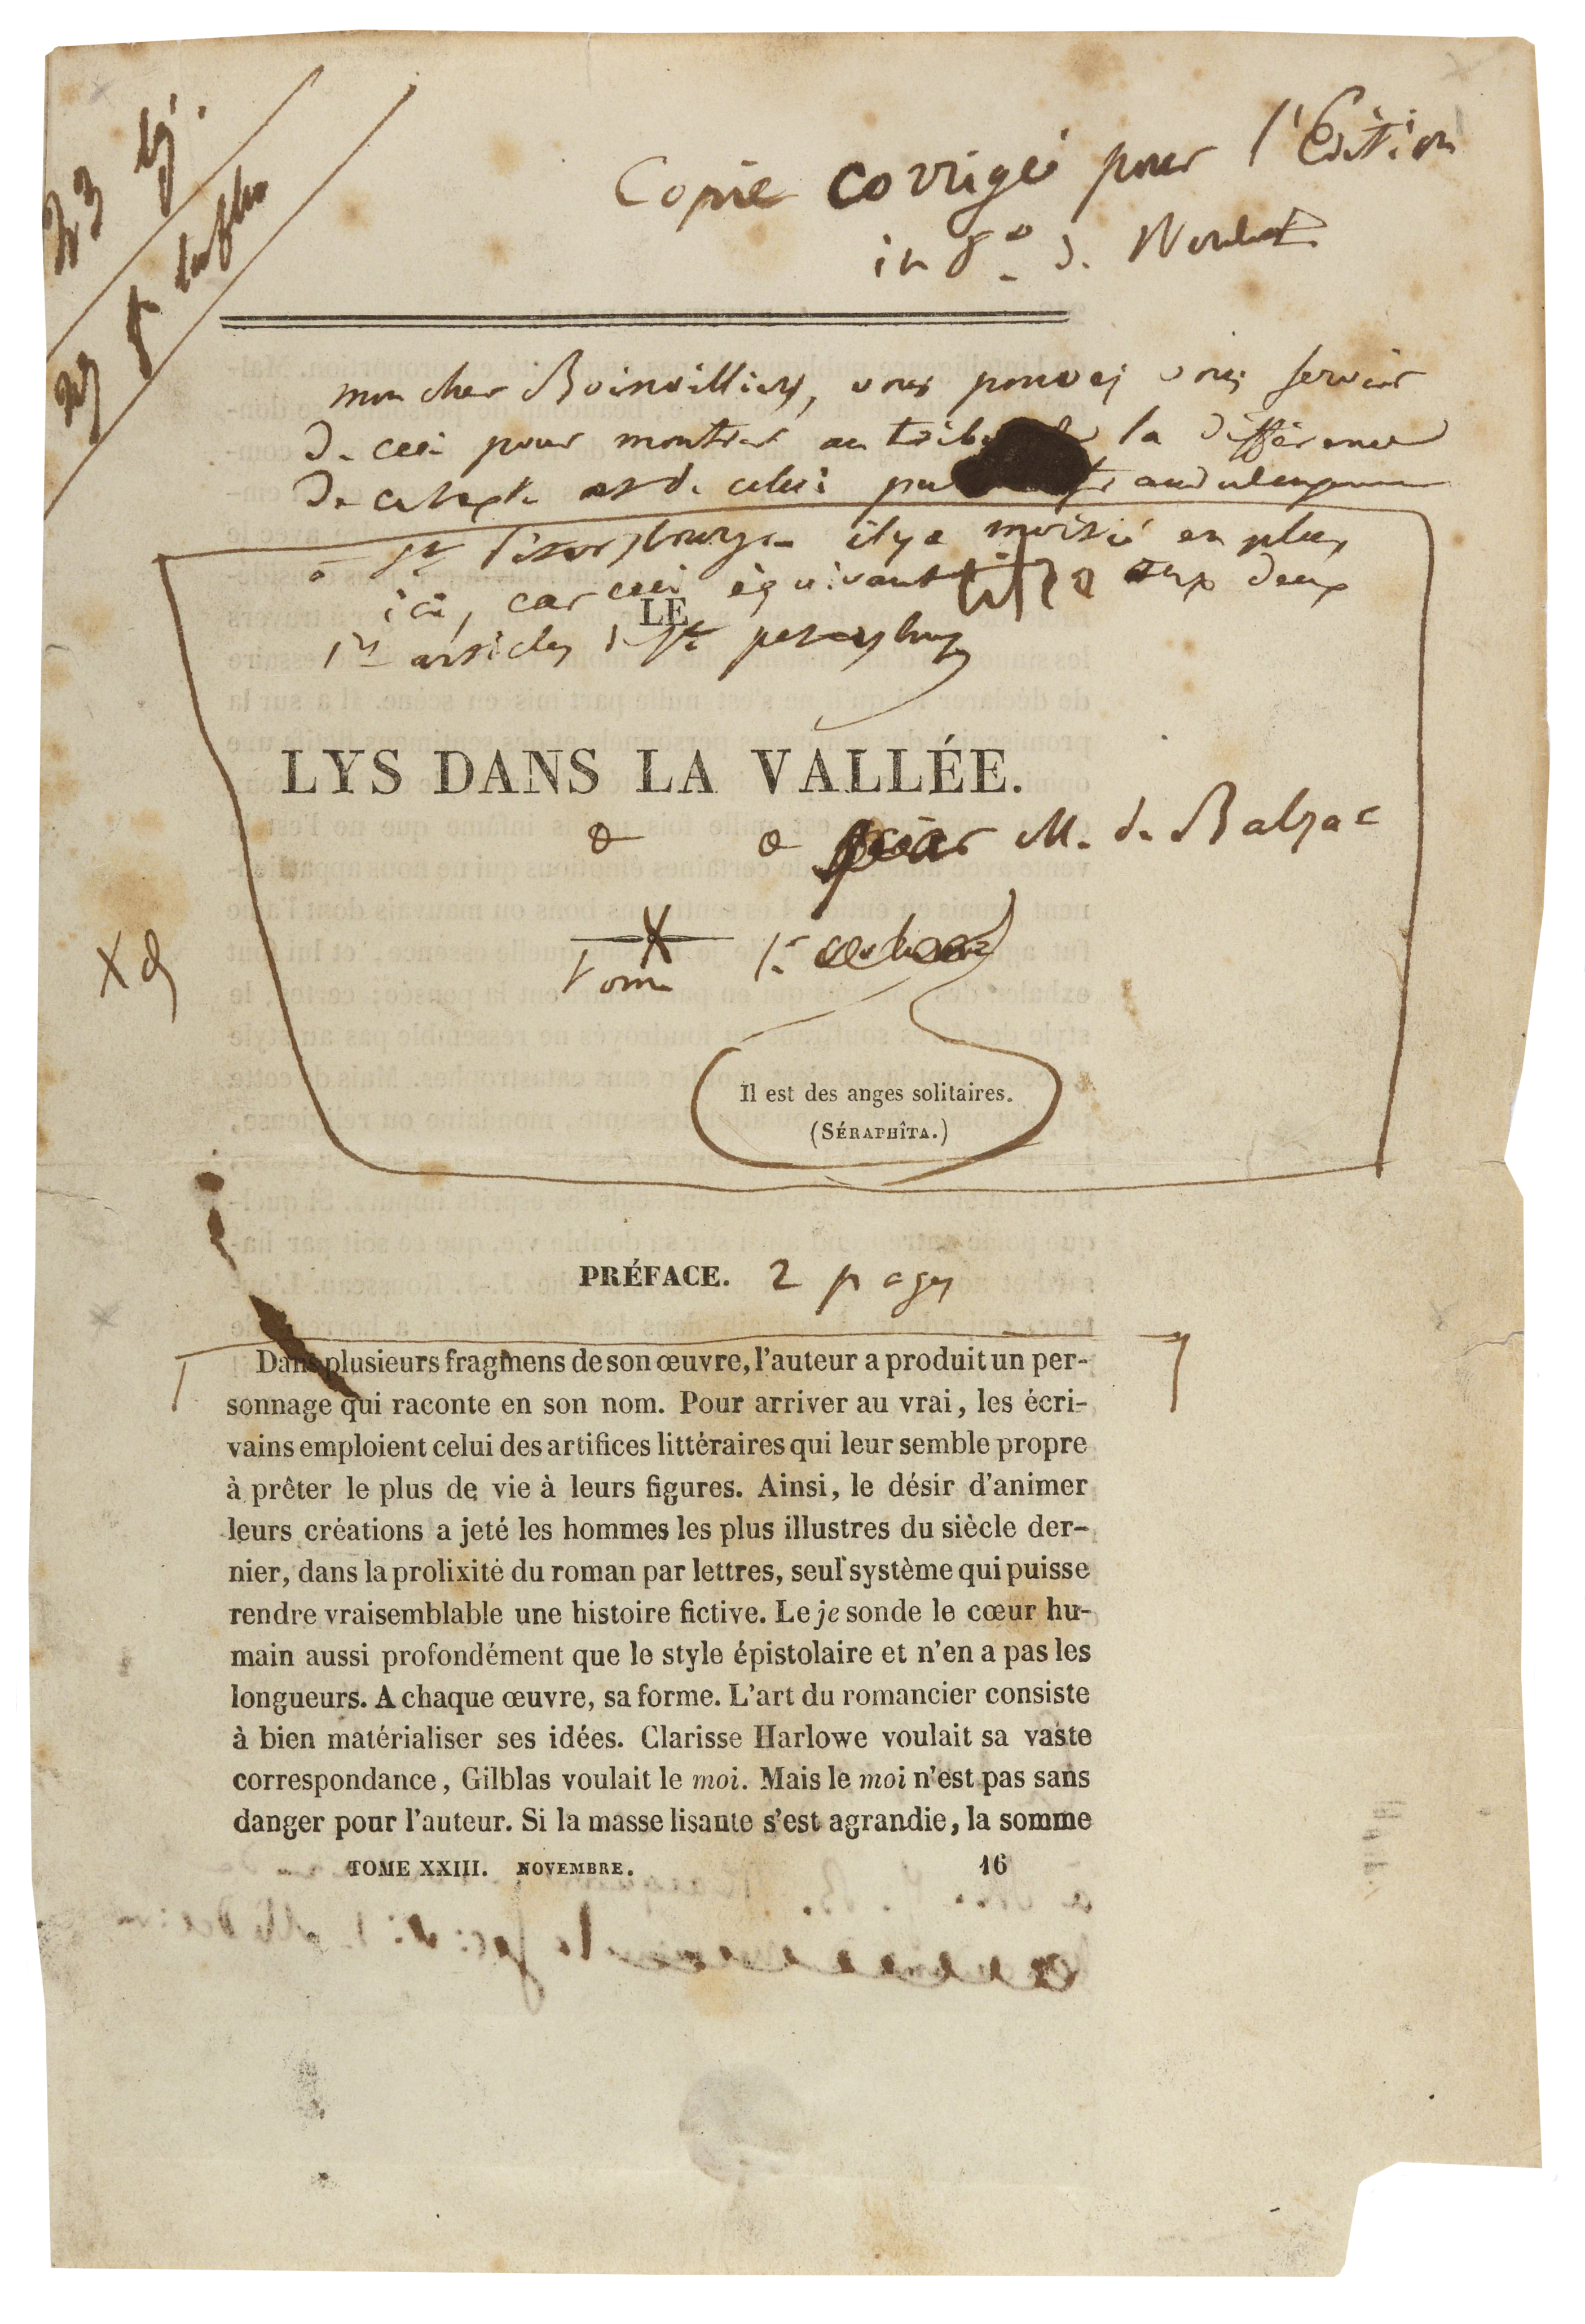 Copie corrigée pour l'Édition
in 8o d. Werdet
mon cher Boinvilliers, vous pouvez vous servir
de ceci pour montrer au la différence
de ce texte et de celui
à St Petersbourg. il y a moitié en plus
ici, car ceci équivaut aux deux
1ers articles d St petersbourg
LE
LYS DANS LA VALLÉE.
par M. de Balzac
Tome 1er
Il est des anges solitaires.
(SÉRAPHÎTA.)
PRÉFACE. 2 pages
Dans plusieurs fragmens de son œuvre, l'auteur a produit un per-
sonnage qui raconte en son nom. Pour arriver au vrai, les écri-
vains emploient celui des artifices littéraires qui leur semble propre
à prêter le plus de vie à leurs figures. Ainsi, le désir d'animer
leurs créations a jeté les hommes les plus illustres du siècle der-
nier, dans la prolixité du roman par lettres, seul système qui puisse
rendre vraisemblable une histoire fictive. Le je sonde le cœur hu-
main aussi profondément que le style épistolaire et n'en a pas les
longueurs. A chaque œuvre, sa forme. L'art du romancier consiste
à bien matérialiser ses idées. Clarisse Harlowe voulait sa vaste
correspondance, Gilblas voulait le moi. Mais le moi n'est pas sans
danger pour l'auteur. Si la masse lisante s'est agrandie, la somme
TOME XXIII. NOVEMBRE. 16